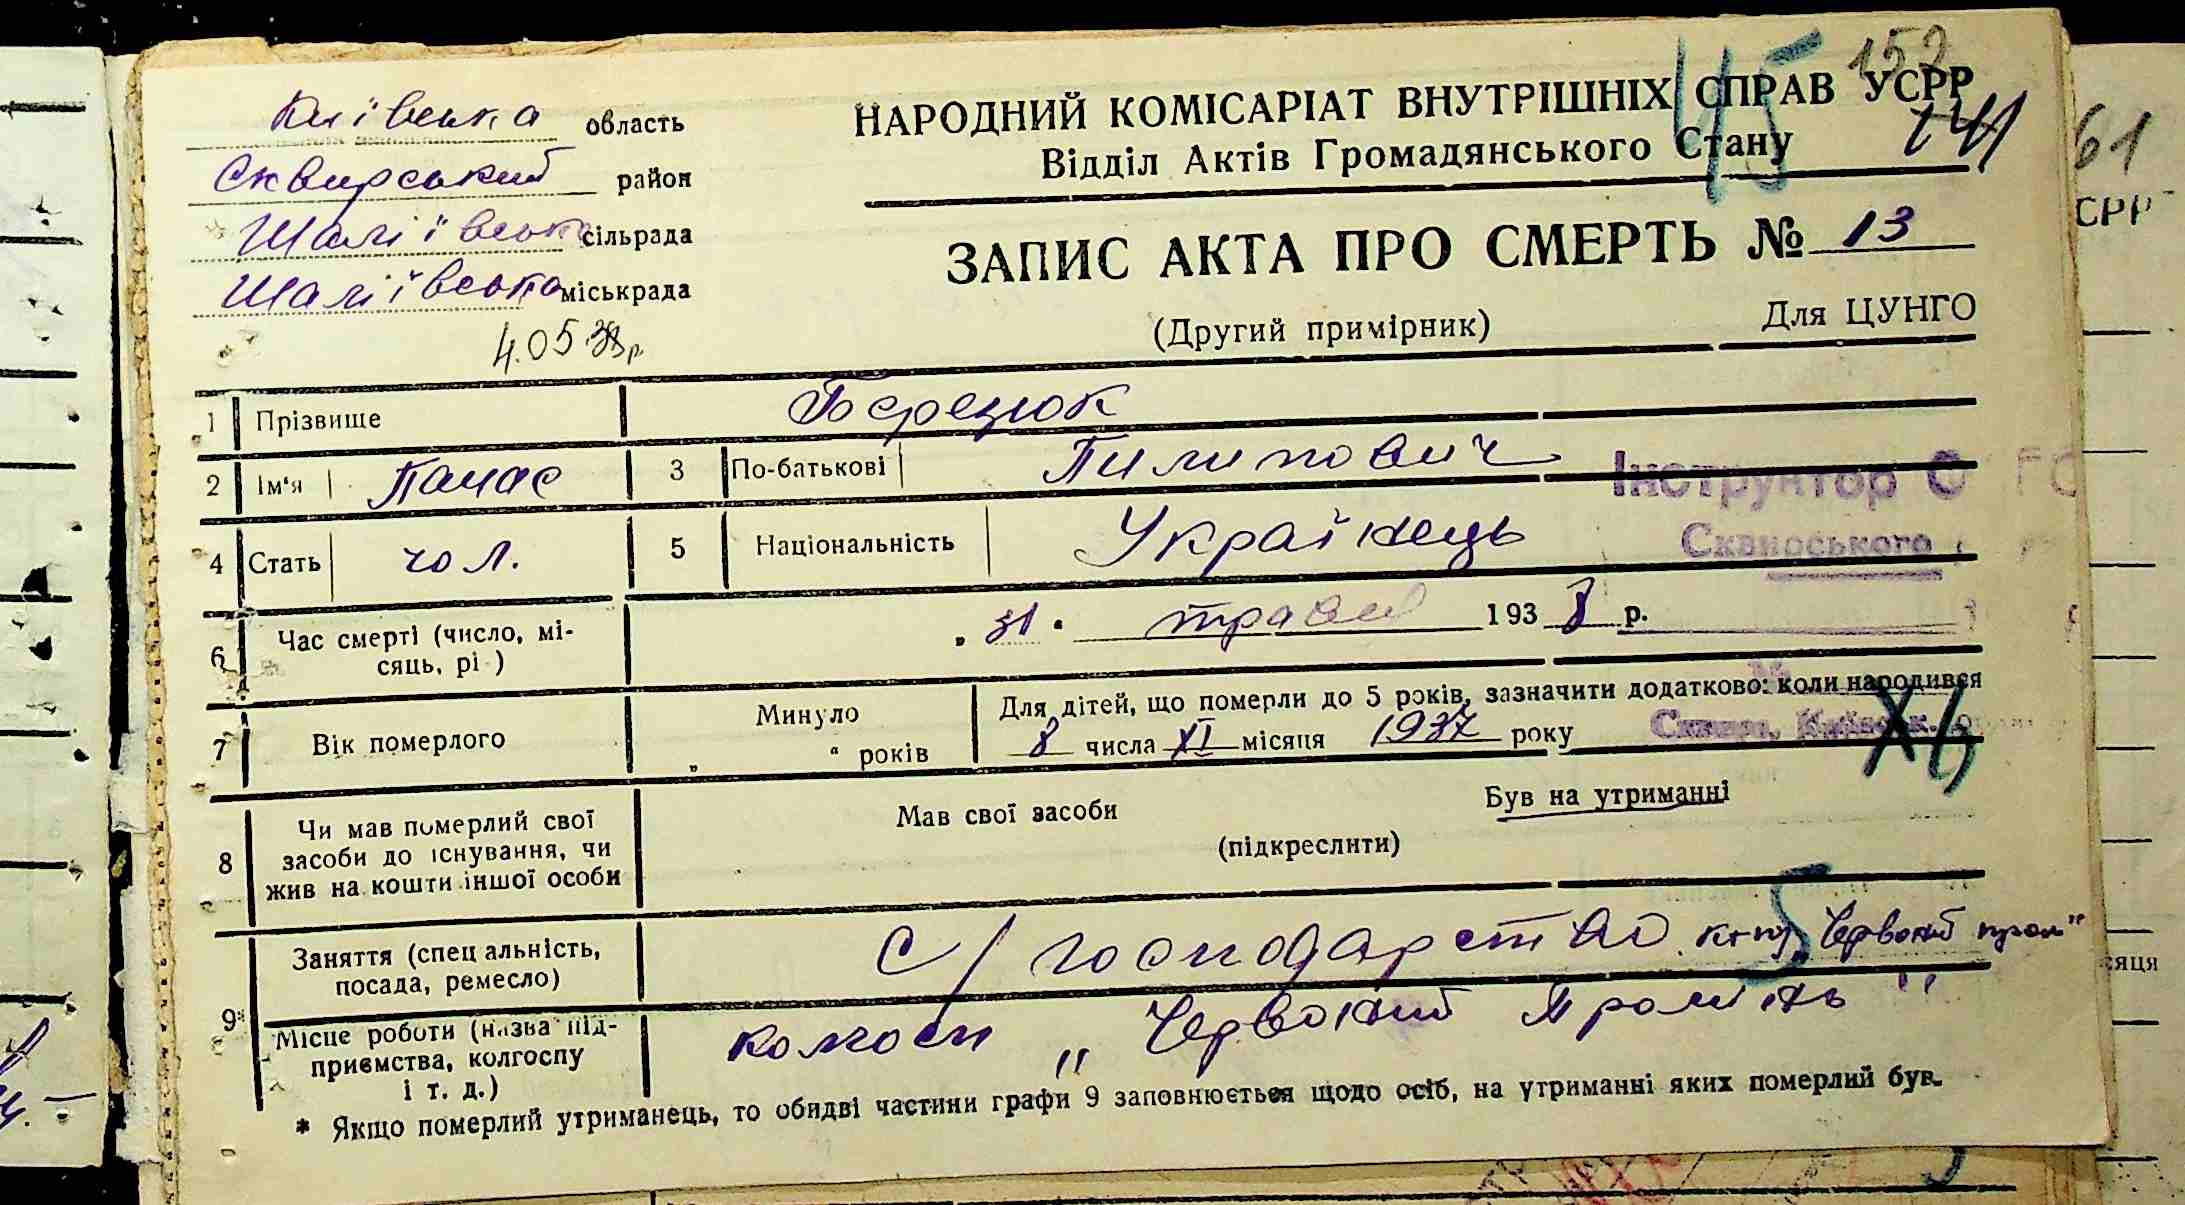 45 159
Київська область
НАРОДНИЙ КОМІСАРІАТ ВНУТРІШНІХ СПРАВ УСРР
141
61
Сквирський район
Відділ Актів Громадянського Стану
СРР
Шаліївська сільрада
ЗАПИС АКТА ПРО СМЕРТЬ № 13
Шаліївська міськрада
(Другий примірник) Для ЦУНГО
4.05 р.
1 Прізвище Березюк
2 Ім'я Панас 3 По-батькові Пилипович
Інструктор
4 Стать чол. 5 Національність Українець
Сквирського
6 Час смерті (число, мі-
сяць, рі ) „ 31 " трав 1938 р.
7 Вік померлого Минуло „ " років
Для дітей, що померли до 5 років, зазначити додатково: коли народився
8 числа XI місяця 1937 року
Сквира, Київськ.
8 Чи мав померлий свої
засоби до існування, чи
жив на кошти іншої особи
Мав свої засоби Був на утриманні
(підкреслити)
9* Заняття (спец альність,
посада, ремесло)
с/господарство 5 Червоний пром"
сяця
Місце роботи (назва під-
приємства, колгоспу
і т. д.)
колгосп „Червоний Промінь"
* Якщо померлий утриманець, то обидві частини графи 9 заповнюється щодо осіб, на утриманні яких померлий був.